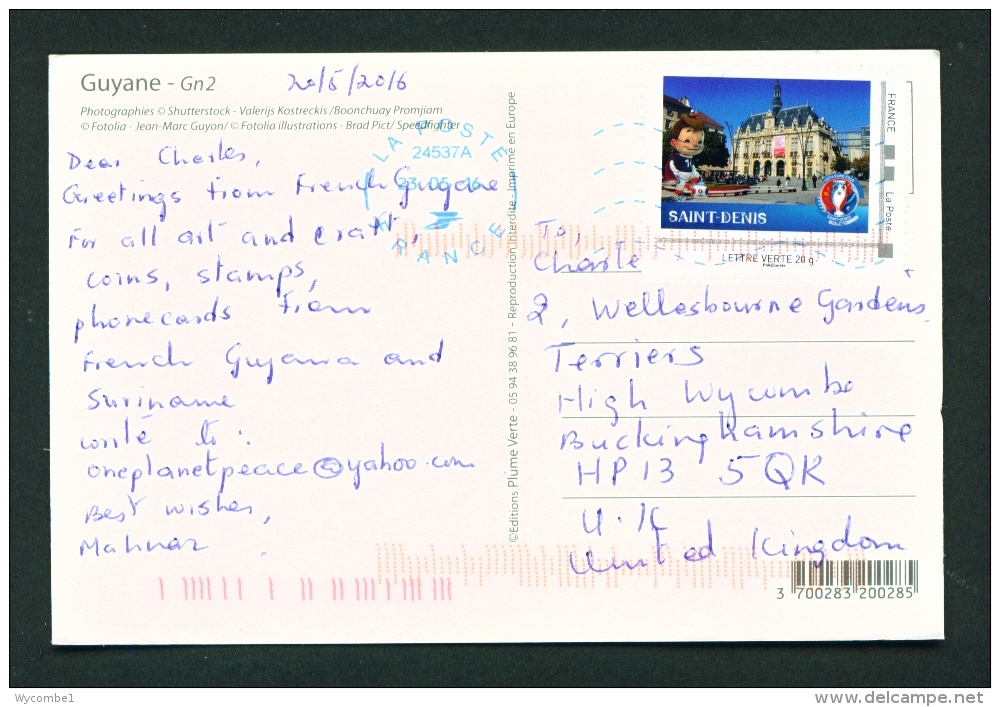 Guyane - Gn2
20/5/2016
Photographies © Shutterstock - Valerijs Kostreckis /Boonchuay Promjiam
© Fotolia - Jean-Marc Guyon/ © Fotolia illustrations - Brad Pict/ Speedfighter
Dear Charles,
Greetings from French Guyane
For all art and craft,
coins, stamps,
phonecards from
French Guyana and
Suriname
write to:
oneplanetpeace@yahoo.com
Best wishes,
Mahnaz
LA POSTE
24537A
23-05-16
FRANCE
©Editions Plume Verte - 05 94 38 96 81 - Reproduction interdite - Imprimé en Europe
SAINT-DENIS
FRANCE
La Poste
LETTRE VERTE 20 g
To,
Charle
2, Wellesbourne Gardens,
Terriers
High Wycombe
Buckinghamshire
HP13 5QK
U.K
United Kingdom
3 700283 200285
Wycombe1
www.delcampe.net